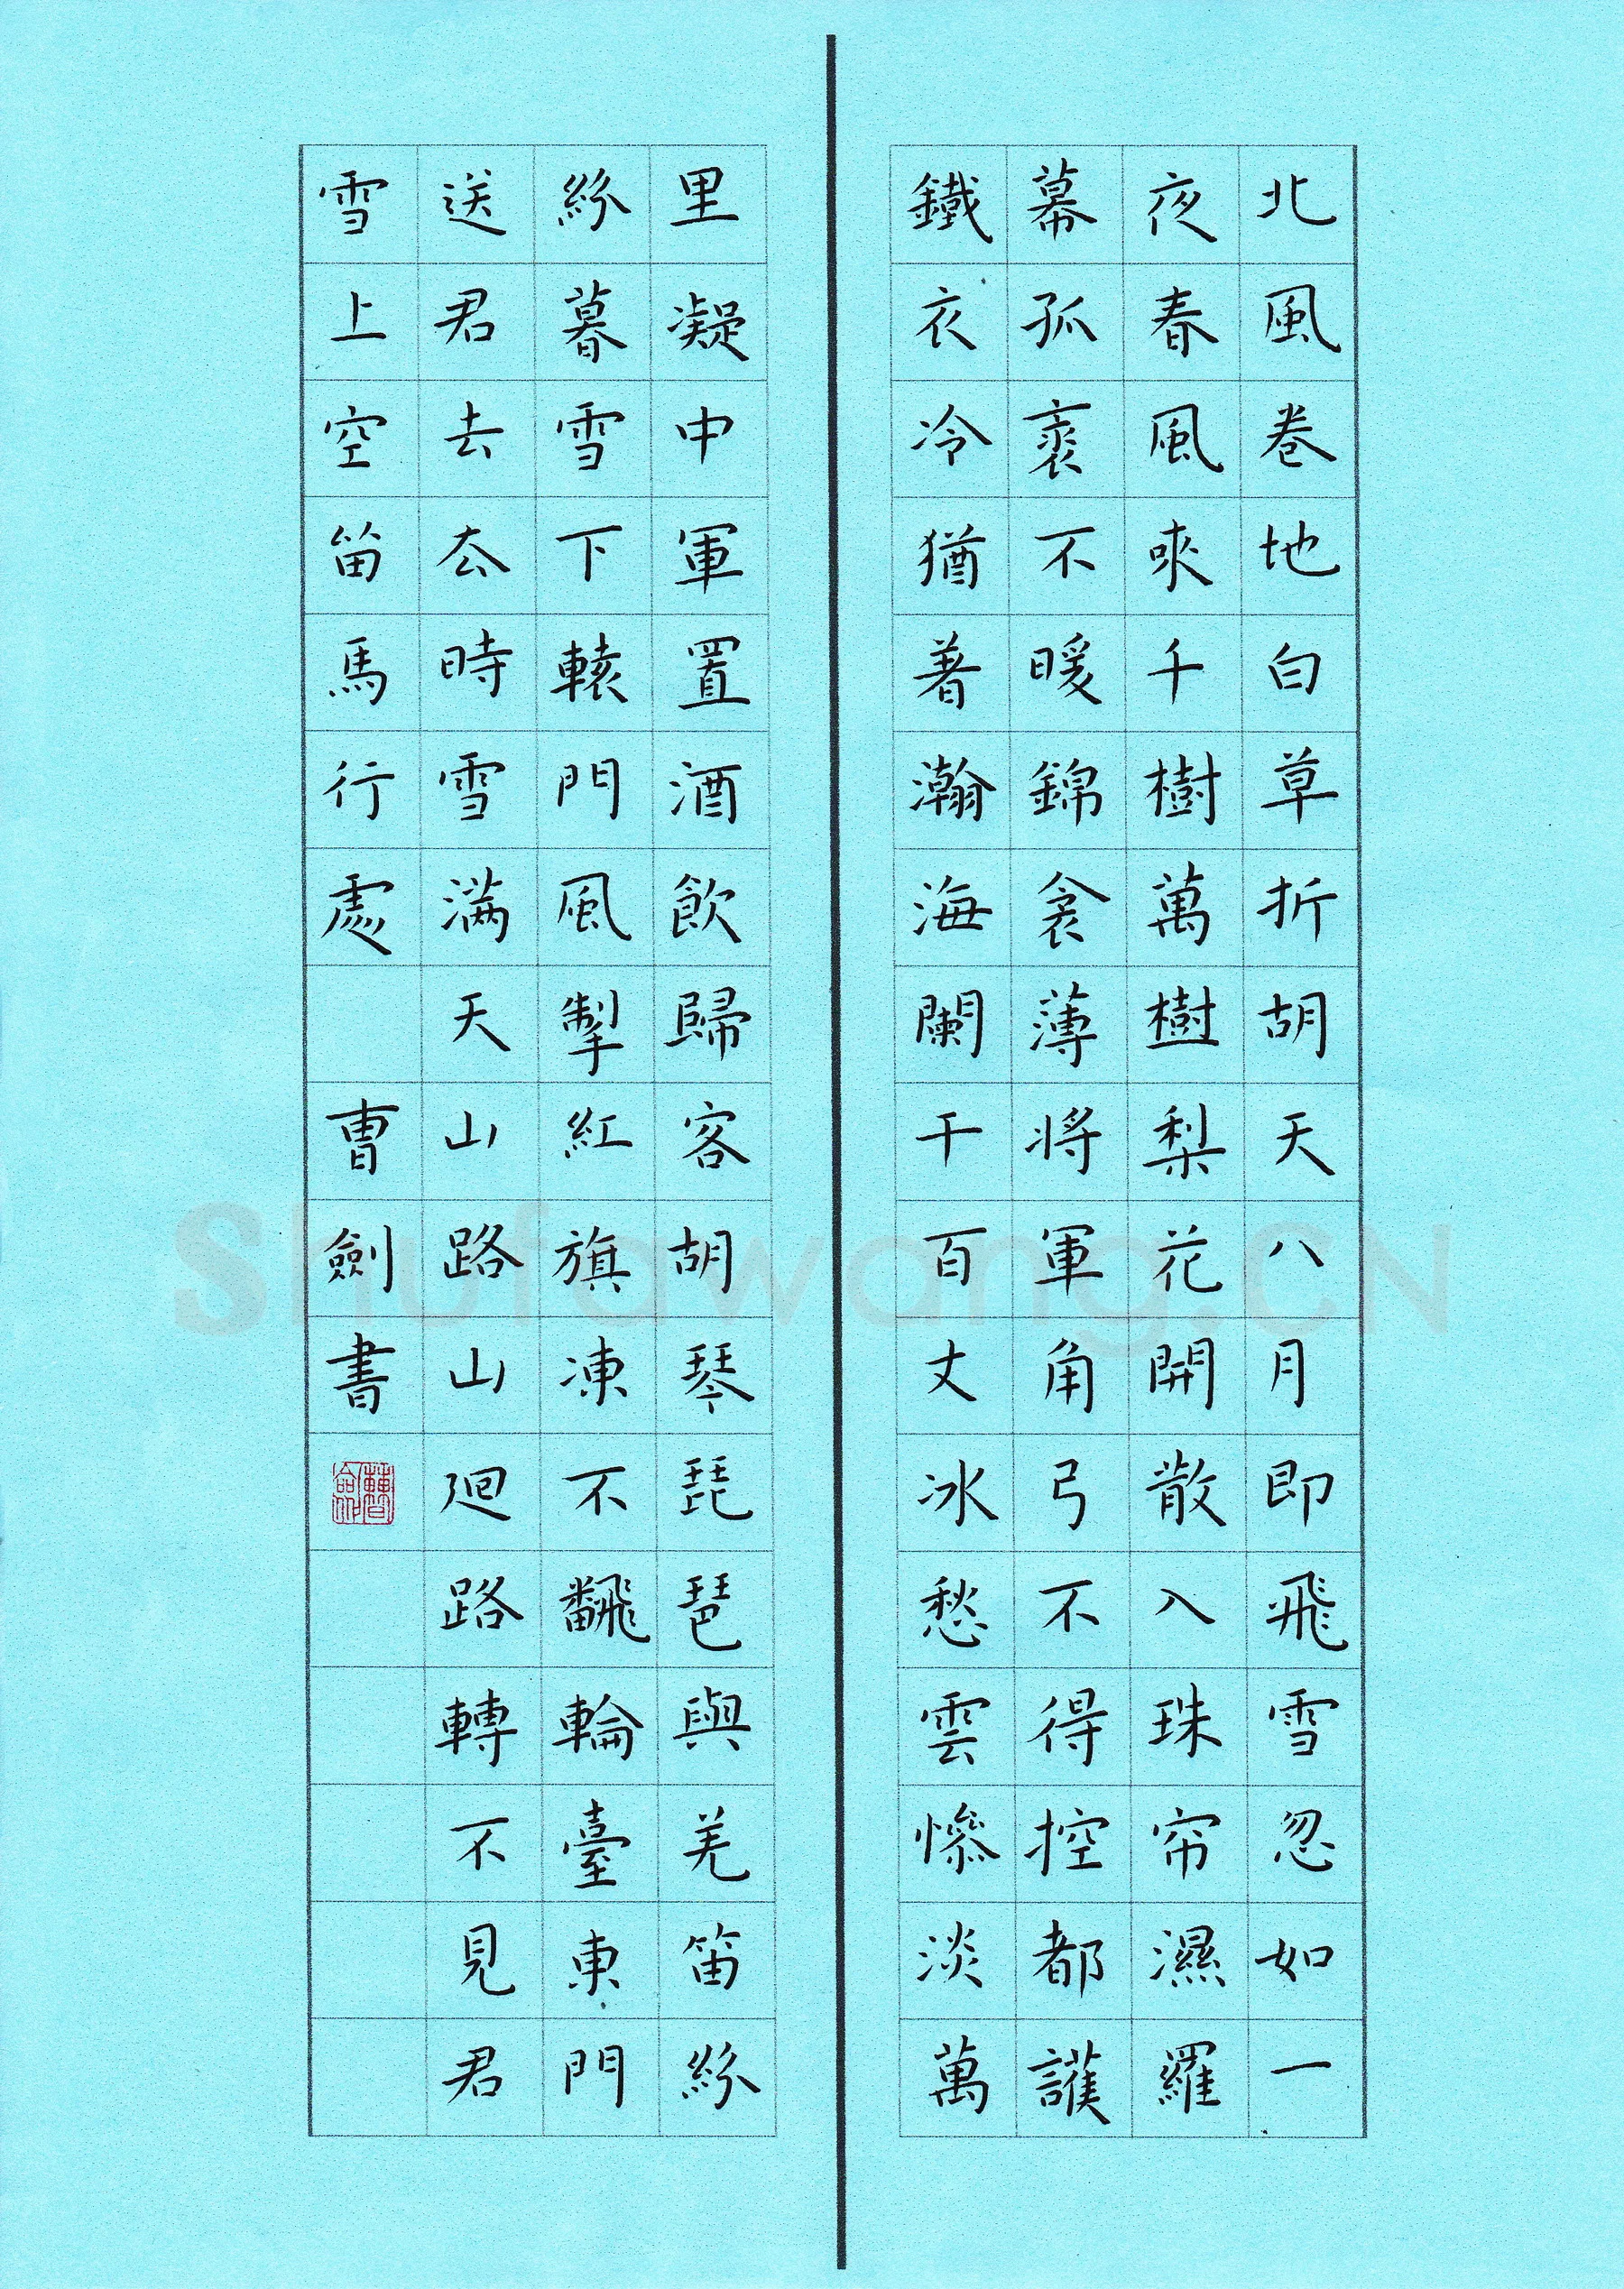 北風卷地白草折胡天八月即飛雪忽如一
夜春風来千樹萬樹梨花開散入珠帘濕羅
幕孤裘不暖錦衾薄将軍角弓不得控都護
鐵衣冷猶著瀚海闌干百丈冰愁雲慘淡萬
里凝中軍置酒飲歸客胡琴琵琶與羌笛紛
紛暮雪下轅門風掣紅旗凍不翻輪臺東門
送君去去時雪滿天山路山迴路轉不見君
雪上空笛馬行處 曹劍書
Shufawang.CN